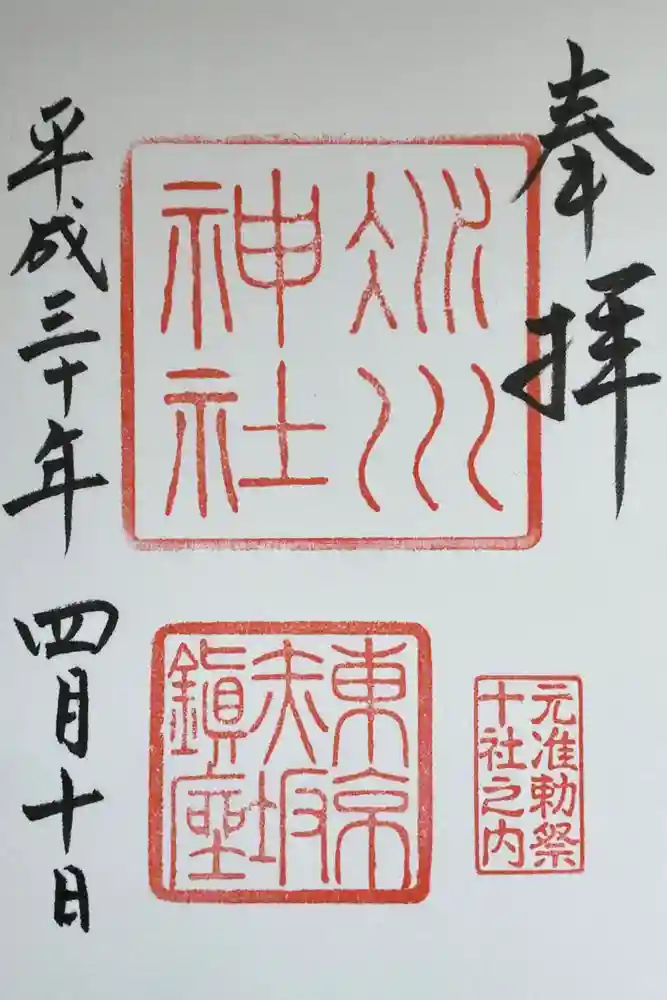 奉拝
氷川
神社
東京
赤坂
鎭座
元准勅祭
十社之内
平成三十年 四月十日